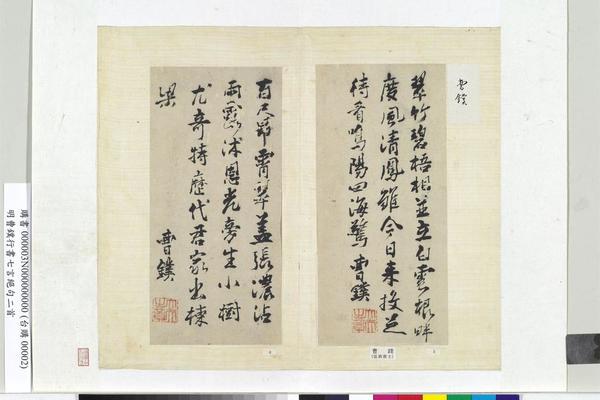 曹鏷
翠竹碧梧相並立白雲根畔
度風清鳳雛今日来投足
待看鳴陽四海驚 曹鏷
百尺昂霄翠蓋張濃沾
雨露沐恩光旁生小樹
尤奇特歷代君家出棟
梁
曹鏷
曹鏷
購書 000003N000000000 (台購 00002)
明曹鏷行書七言絕句二首